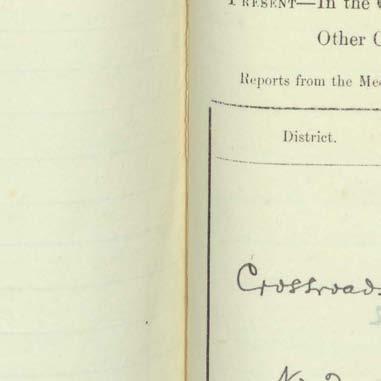 PRESENT—In the
Other
Reports from the Med
District.
Crossroads